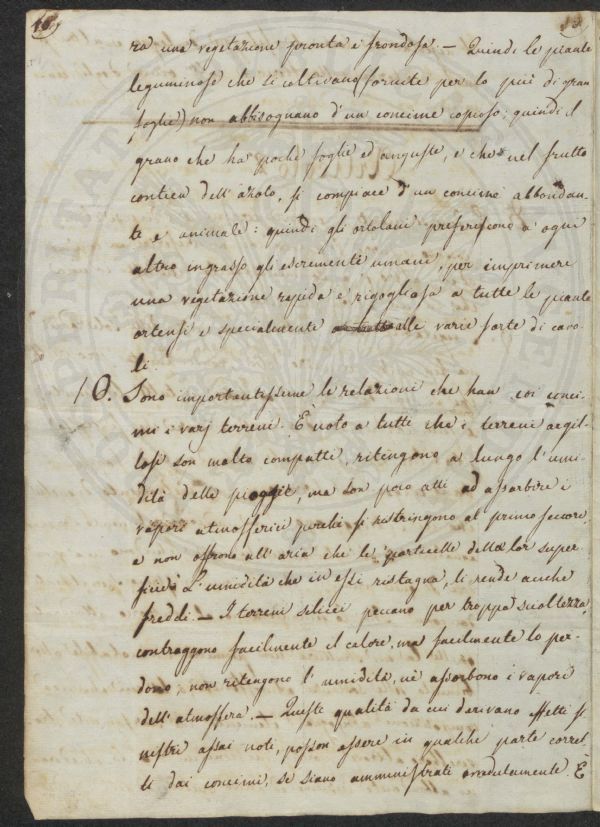 ra una vegetazione pronta e frondosa. — Quindi le piante
leguminose che si coltivano (fornite per lo più di gran
foglie) non abbisognano d'un concime copioso: quindi il
grano che ha poche foglie ed anguste, e che nel frutto
contien dell'azoto, si compiace d'un concime abbondan-
te e animale: quindi gli ortolani preferiscono a ogni
altro ingrasso gli escrementi umani, per imprimere
una vegetazione rapida e rigogliosa a tutte le piante
ortensi e specialmente alle varie sorte di cavo-
li.
10. Sono importantissime le relazioni che han coi conci-
mi i varj terreni. È noto a tutti che i terreni argil-
losi son molto compatti, ritengono a lungo l'umi-
dità delle piogge, ma son poco atti ad assorbire i
vapori atmosferici perchè si restringono al primo seccore,
e non offrono all'aria che le particelle della lor super
ficie. L'umidità che in essi ristagna, li rende anche
freddi. — I terreni silicei peccano per troppa scioltezza,
contraggono facilmente il calore, ma facilmente lo per-
dono, non ritengono l'umidità, nè assorbono i vapori
dell'atmosfera. — Queste qualità da cui derivano effetti si
nistri assai noti, posson essere in qualche parte corret-
ti dai concimi, se siano amministrati avvedutamente. È